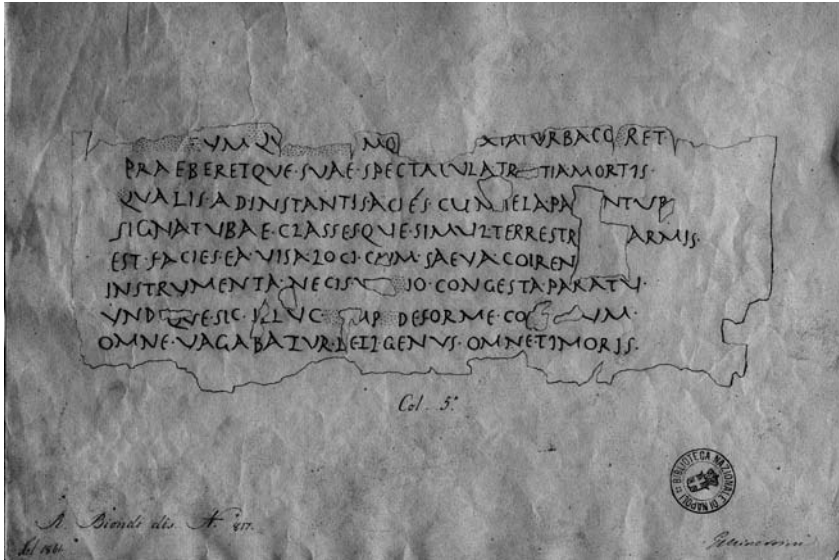 VMQV MQ XTATVRBACO RET
PRAEBERETQVE·SVAE·SPECTACVLATR TIAMORTIS·
QVALIS·ADINSTANTIS·ACIÉS·CVM TELAPA NTVR
SIGNATVBAE·CLASSESQVE·SIMVLTERRESTR ARMIS·
EST·FACIES·EA·VISA·LOCI·CVM·SAEVA·COIREN
INSTRVMENTA·NECIS·V IO·CONGESTA·PARATV·
VND QVE·SIC·ILLVC· MP DEFORME·CO VM·
OMNE·VAGABATVR·LETI·GENVS·OMNETIMORIS·
Col. 5ª
R. Biondi dis. N. 817.
BIBLIOTECA NAZIONALE DI NAPOLI